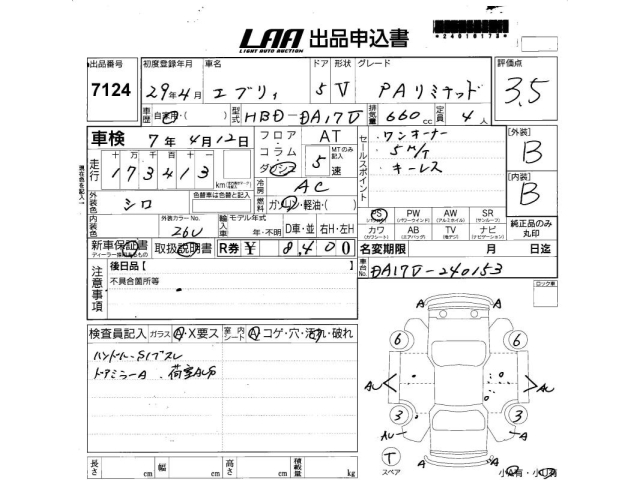 *24016173*
LAA 出品申込書
LIGHT AUTO AUCTION
出品番号 初度登録年月 車名 ドア 形状 グレード 評価点
7124 29年4月 エブリィ 5 V PAリミテッド 3.5
車歴 自家用・( ) 型式 HBD-DA17V 排気量 660 cc 定員 4 人
車検 7年4月12日 フロア・コラム・ダッシュ AT MTのみ記入 5 速
セールスポイント
ワンオーナー
5M/T
キーレス
[外装]
B
[内装]
B
走行 十万千百十一
173413 km
冷房 AC
燃料 ガソリン・軽油・( )
外装色 シロ 色替車は色替と記入
外装カラーNo. 26U
輸入車 モデル年式 年・不明 D車・並 右H・左H
PS PW AW SR
(パワーウィンドウ) (アルミホイール) (サンルーフ)
カワ ABS TV ナビ
(エアバッグ) (電子) (ナビゲーション)
純正品のみ丸印
新車保証書 取扱説明書 R券 ¥ 8,400 名変期限 月 日迄
車台No. DA17V-240153
現在色を記入
注意事項
後日品[ ]
不具合箇所等
ロック車
検査員記入 ガラス A・X要ス 室内シート A コゲ・穴・汚れ・破れ
ハンドル・S1ブスレ
ドアミラーA 荷室AUS
A A
6 6
AU AU
3 3
AU A
A A
T
スペア
長さ cm 幅 cm 高さ cm 積載量 kg
小A有・小U有